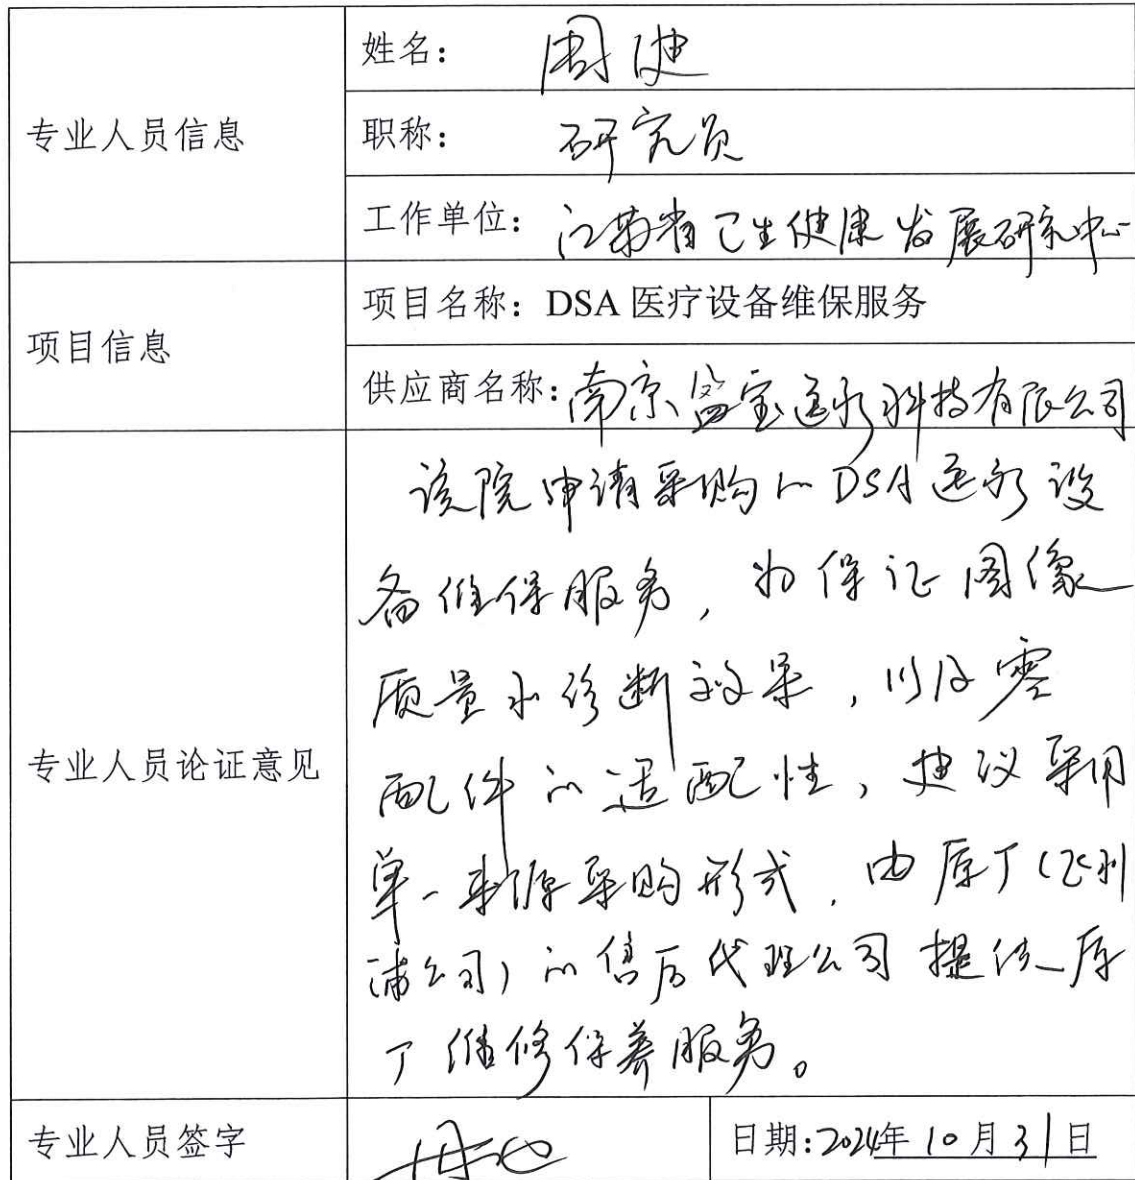 专业人员信息
姓名：周健
职称：研究员
工作单位：江苏省卫生健康发展研究中心
项目信息
项目名称：DSA 医疗设备维保服务
供应商名称：南京益宝医疗科技有限公司
专业人员论证意见
该院申请采购的DSA医疗设
备维保服务，为保证图像
质量和诊断效果，以及零
配件的适配性，建议采用
单一来源采购形式，由原厂（飞利
浦公司）的售后代理公司提供原
厂维修保养服务。
专业人员签字
日期：2024年10月31日